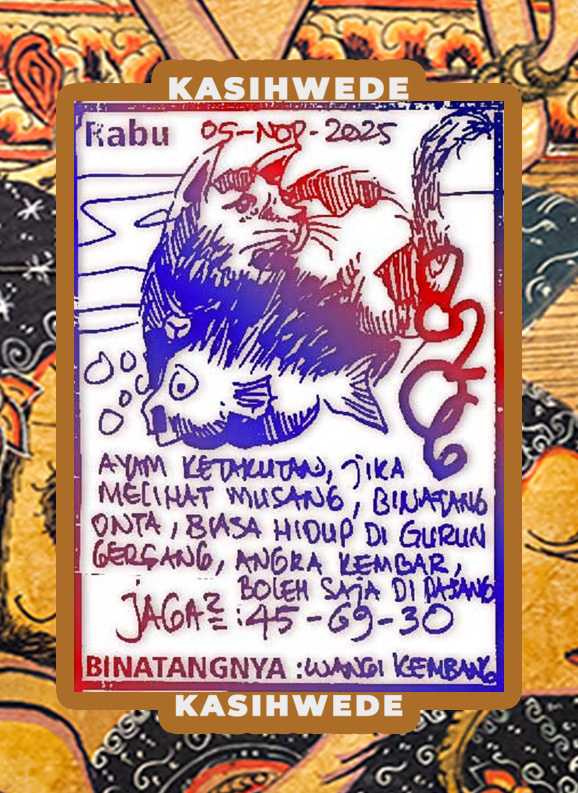 KASIHWEDE
Rabu 05-NOP-2025
AYAM KETAKUTAN, JIKA
MELIHAT MUSANG, BINATANG
ONTA, BIASA HIDUP DI GURUN
GERSANG, ANGKA KEMBAR,
BOLEH SAJA DI PASANG
JAGA2 =: 45-69-30
BINATANGNYA : WANGI KEMBANG
KASIHWEDE